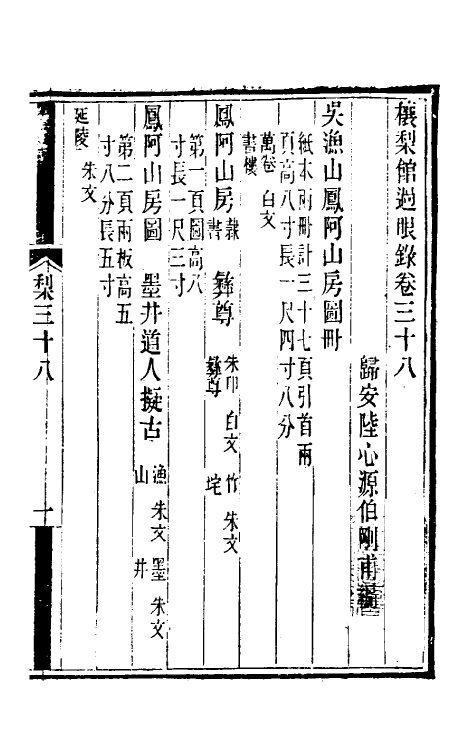 穰梨館過眼錄卷三十八
歸安陸心源伯剛甫編
吳漁山鳳阿山房圖冊
紙本兩冊計三十七頁引首兩
頁高八寸長一尺四寸八分
萬卷書樓 白文
鳳阿山房 隸書 彝尊 朱印 彝尊 白文 竹垞 朱文
第一頁圖高八
寸長一尺三寸
鳳阿山房圖 墨井道人擬古 漁山 朱文 墨井 朱文
第二頁兩板高五
寸八分長五寸
延陵 朱文
梨三十八
一